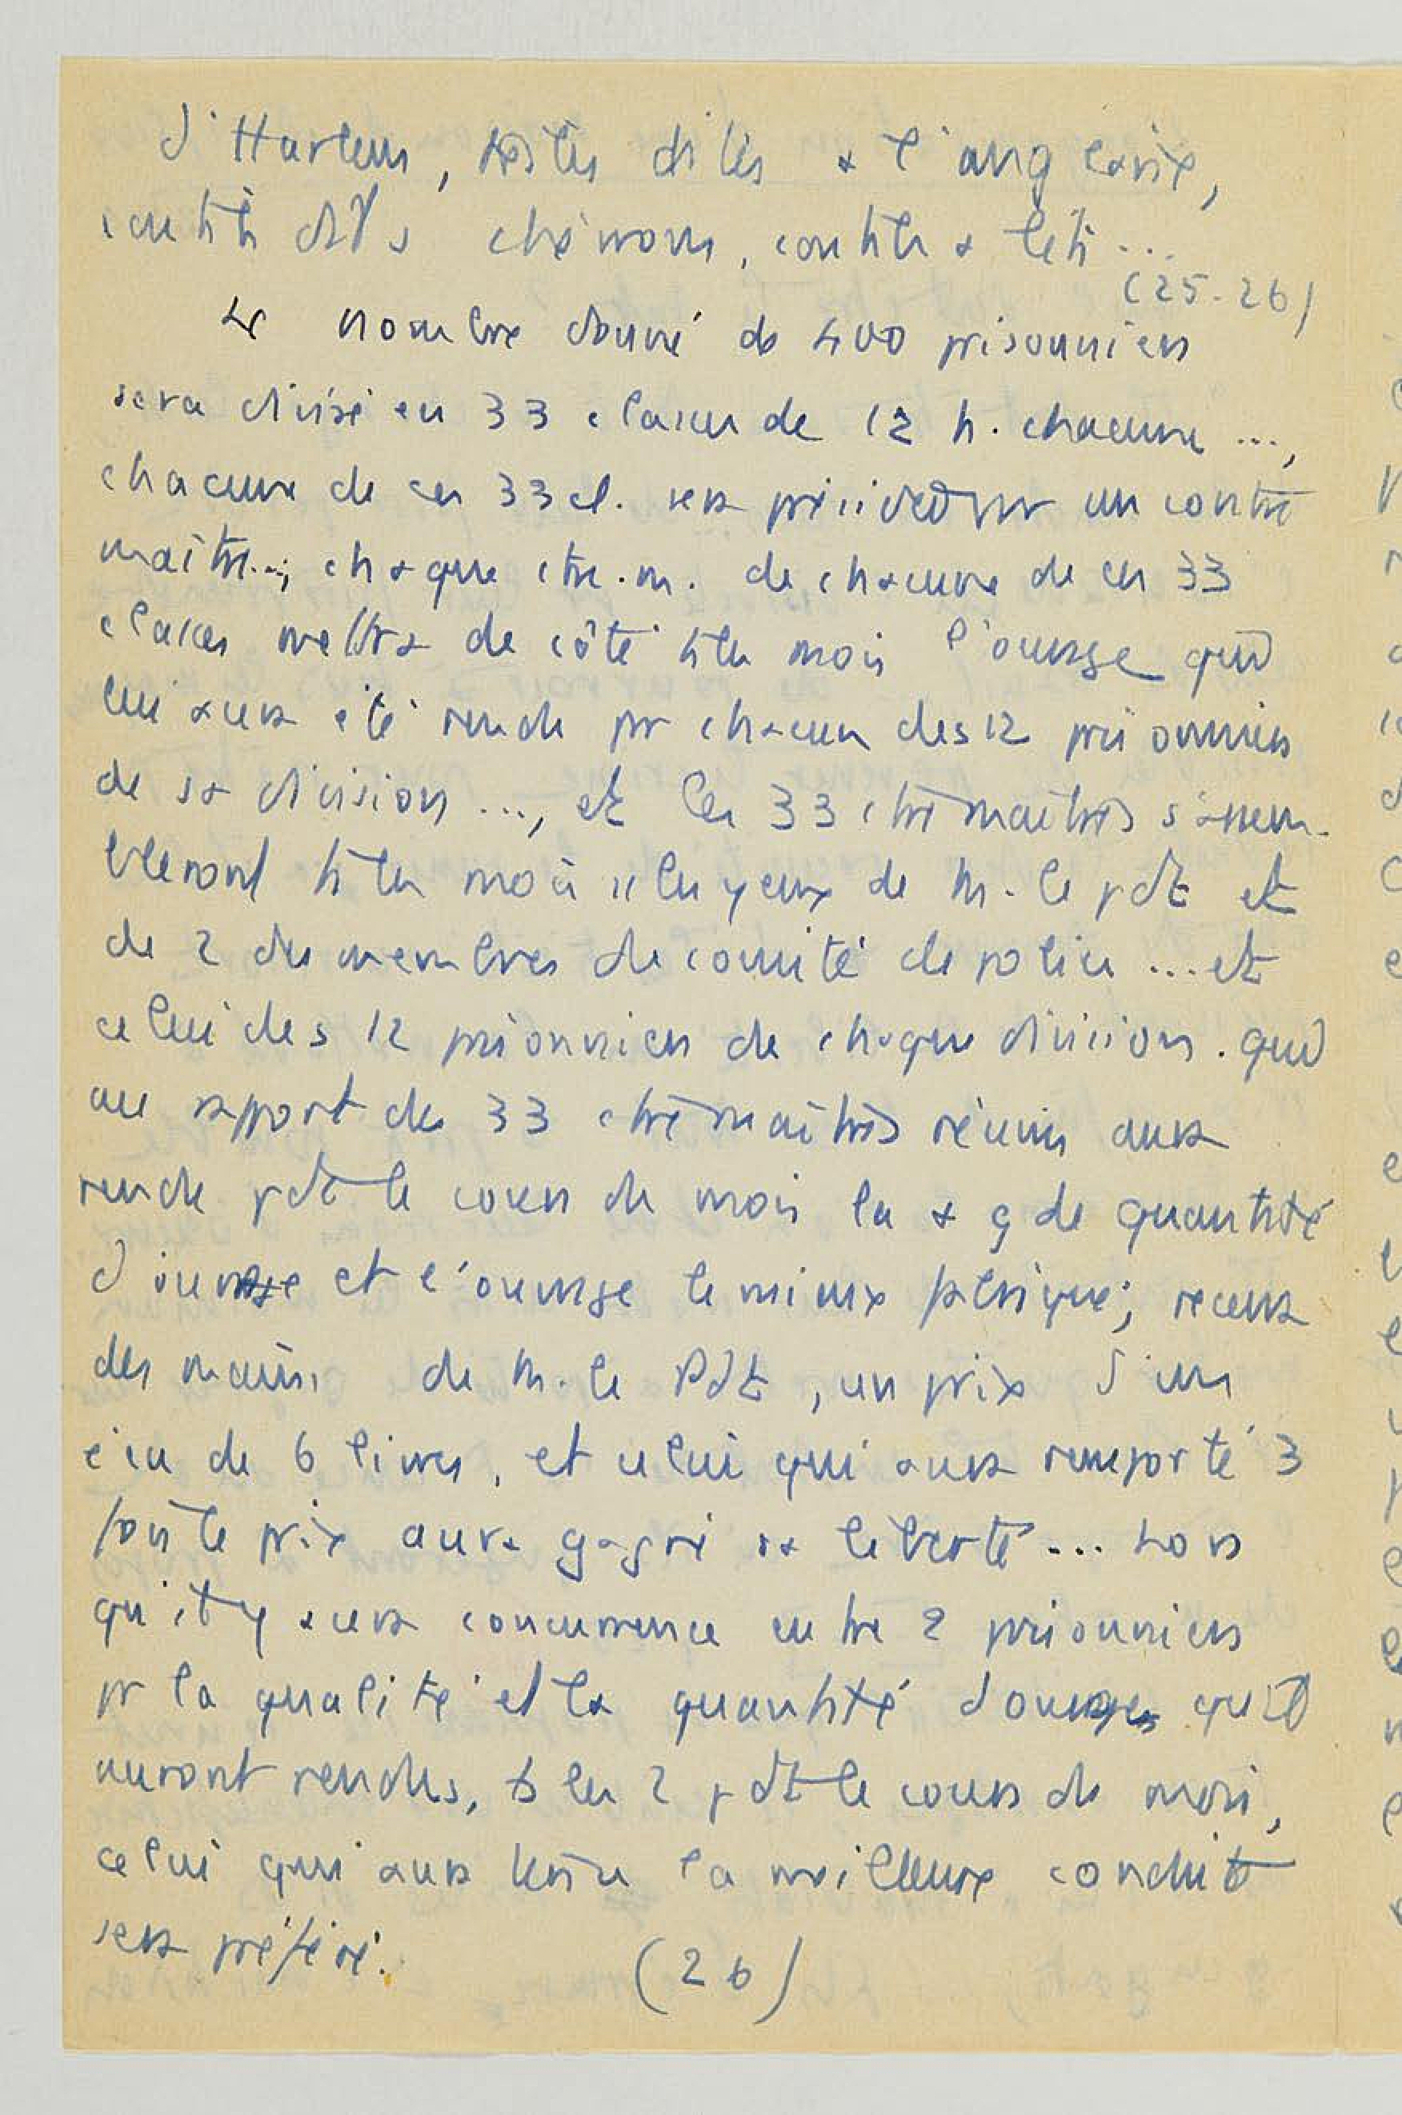 d'Harlem, dites à l'anglaise,
chevrons, coutils à lits...
(25-26)
Le nombre donné de 400 prisonniers
sera divisé en 33 classes de 12 h. chacune ...,
chacune de ces 33 cl. sera présidée par un contre
maître...; chaque ctre.m. de chacune de ces 33
classes mettra de côté ts les mois l'ouvrage qui
lui aura été rendu pr chacun des 12 prisonniers
de sa division ..., et les 33 ctremaîtres s'assem-
bleront ts les mois ss les yeux de M. le pdt et
de 2 des membres du comité de police ... et
celui des 12 prisonniers de chaque division. qui
au rapport des 33 ctremaîtres réunis aura
rendu pdt le cours du mois la + gde quantité
d'ouvrage et l'ouvrage le mieux fabriqué; recevra
des mains de M. le Pdt, un prix d'un
écu de 6 livres, et celui qui aura remporté 3
fois le prix aura gagné sa liberté ... Lors
qu'il y aura concurrence entre 2 prisonniers
pr la qualité et la quantité d'ouvrages qu'ils
auront rendus, ts les 2 pdt le cours du mois,
celui qui aura tenu la meilleure conduite
sera préféré. (26)